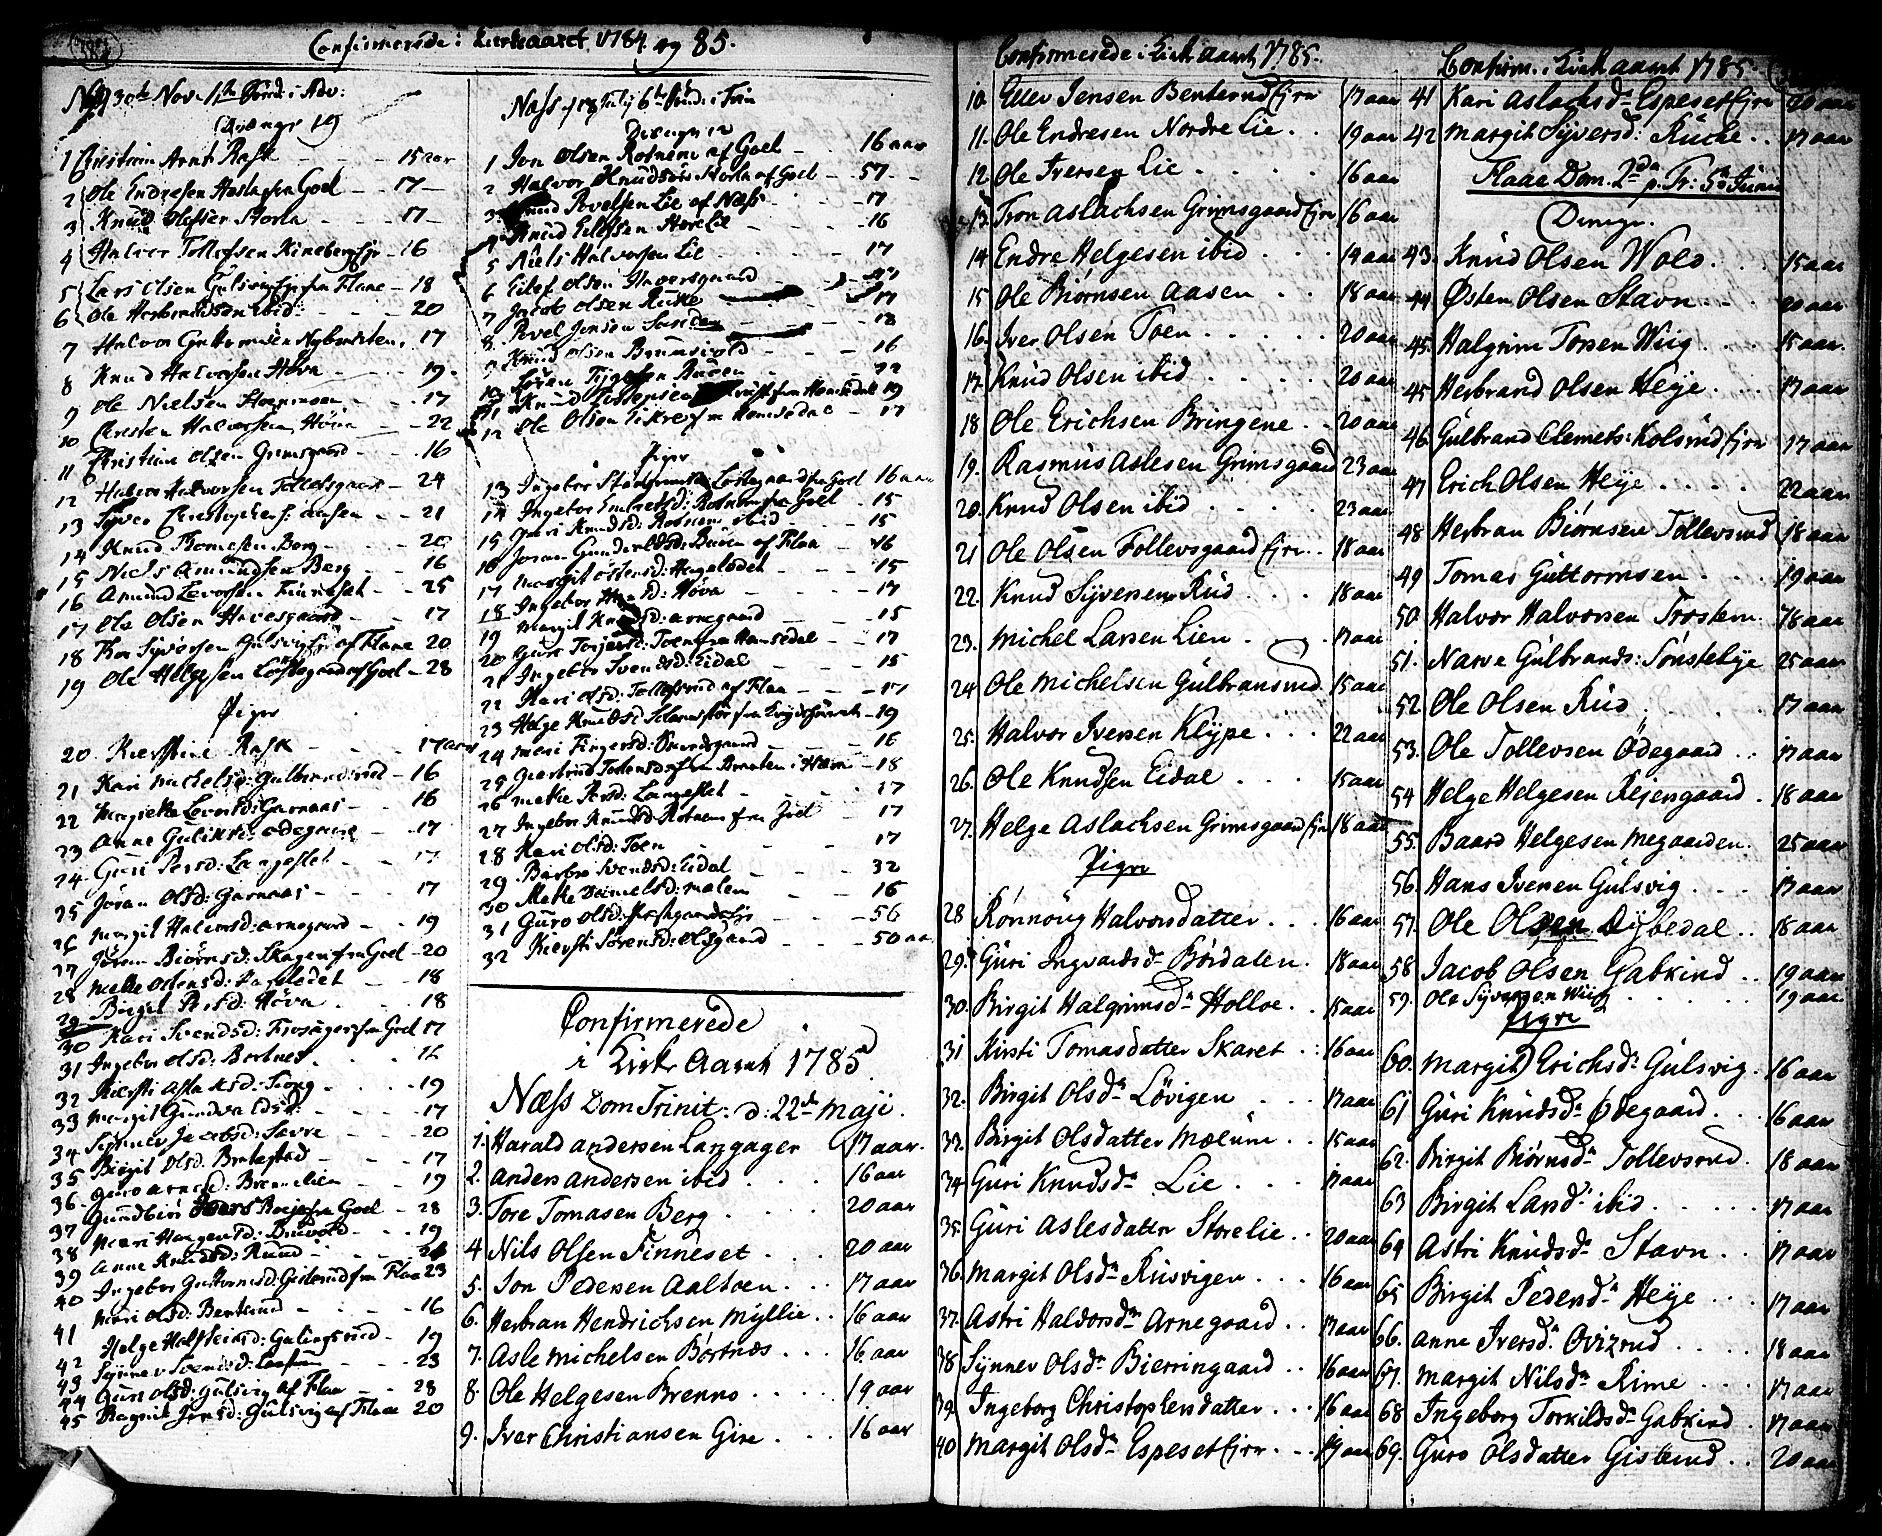 Confirmerede i Kirkeaaret 1784 og 85.
30te Nov. 1te Sønd: i Adv:
Drenge 19
1 Christian Arnt Rask - - - 15 aar
2 Ole Endresen Hasla fra Goel - 17
3 Knud Olsen Storla - - 17
4 Halvor Tollefsen - 16
5 Lars Olsen Gulsvig fra Flaae - 18
6 Ole Herbrandsen ibid: - - 20
7 Halvor Guttormsen 17
8 Knud Halvorsen Høva - - 19
9 Ole Nielsen - - 17
10 Christen Halvorsen Høva - - 22
11 Christian Olsen Grimsgaard - - 16
12 Halvor Halvorsen Tollefsgaard - 24
13 Syver - 21
14 Knud Tomesen Berg - - 20
15 Niels Amundsen Berg - - 16
16 Amund Levorsen Finneset - - 25
17 Ole Olsen Haversgaard - - 17
18 Tor Syversen Gulsvig af Flaae 20
19 Ole Helgesen af Goel - 28
Piger
20. Kierstine Rask - - - 17 aar
21 Kari Michelsd: Gulbrandsrud - 16
22 Levorsd: Garnaas - 16
23 Anne Odegaard - 17
24 Guri Persd: Langeslet - - 17
25 Jøran Olsd: Garnaas - - 17
26 Margit Halvorsd: Arnegaard - - 19
27 Jøran Biørnsd: Skagen fra Goel - 20
28 Mette - 18
29 Birgit Persd: Høva - - 18
30 Kari Svendsd: fra Goel 17
31 Ingebor Olsd: Bortnes - - 16
32 Kiersti Aslaksd: - - 19
33 Margit Gundvaldsd: - - 17
34 Synnev Jacobsd: Sevre - - 20
35 Birgit Olsd: - - 17
36 Guro Arnesd: Brennelien - - 19
37 Gundbiør fra Goel - 28
38 Mari - 19
39 Anne Knudsd: Ruud - - 24
40 Ingebor Guttormsd: Gislerud fra Flaa 23
41 Mari Olsd: - - 16
42 Helge Halsteensd: - 19
43 Synnev Svendsd: - - 23
44 Guri Olsd: Gulsvig af Flaa - - 28
45 Ragnil Jensd: Gulsvig af Flaae 20
Næss 18 July 6te Sønd: i Trin
Drenge 12
1 Jon Olsen Rotnem af Goel - 16 aar
2 Halvor Knudsøn Storla af Goel - 57
3 Knud Povelsen Lie af Næss - 17
4 Knud Storelie - - 16
5 Niels Halvorsen Lie - - 17
6 Eilef Olsen Haversgaard - -
7 Jacob Olsen Rukke 17
8 Povel Jensen - 18
9 Knud Olsen Bruusvold - - 16
10 Søren Buuen - - 22
11 Knud fra Hemsedal 19
12 Ole Olsen Eikre fra Hemsedal - 17
Piger
13 Ingebor fra Goel 16 aar
14 Ingebor Embretsd: Rotnem fra Goel 15
15 Guri Knudsd: Rotnem ibid - 15
16 Joran Gunderlsd: Buuen af Flaa - 16
17 Margit - - 15
18 Ingebor Høva - - 17
19 Margit Arnegaard - - 15
20 Guri Toen fra Hemsedal - 17
21 Ingebor Svendsd: Eidal - - 15
22 Kari Olsd: Tollefsrud af Flaa - - 17
23 Helge Knudsd: - 19
24 Mari - - 16
25 Giertrud Braaten i - 18
26 Mette Persd: Langeslet - - 17
27 Ingebor Knudsd: Rotnem fra Goel - 17
28 Kari Olsd: Toen - - 17
29 Barbro Svendsd: Eidal - - 32
30 Mette Danielsd: Malem - - 16
31 Guro Olsd: - 56
32 Kiersti Sørensd: Olsgaard - - 50 aar
Confirmerede
i Kirke Aaret 1785
Næss Dom Trinit: d: 22de Maji.
1. Harald Andersen Langager 17 aar.
2. Anders Andersen ibid . . . 16 aar
3. Tore Tomasen Berg . . . 20 aar
4. Nils Olsen Finneset . . . 20 aar
5. Jon Pedersen Aaltoen . . . 17 aar
6. Herbran Hendrichsen Myllie . . 16 aar
7. Asle Michelsen Bortnæs . . 16 aar
8. Ole Helgesen Brenno . . . 19 aar
9. Iver Christiansen Gire . . . 16 aar
Confirmerede i Kirk Aaret 1785.
10. Ellev Jensen Benterud Ejre 17 aar
11. Ole Endresen Nordre Lie . . 19 aar
12. Ole Iversen Lie . . . . 16 aar
13. Tron Aslachsen Grimsgaard Ejre 16 aar
14. Endre Helgesen ibid . . . 19 aar
15. Ole Biørnsen Aasen . . . 18 aar
16. Iver Olsen Toen . . . . 20 aar
17. Knud Olsen ibid . . . . 20 aar
18. Ole Erichsen Bringene . . 20 aar
19. Rasmus Aslesen Grimsgaard 23 aar
20. Knud Olsen ibid . . . . 23 aar
21. Ole Olsen Tollevsgaard Ejre . . 18 aar
22. Knud Syversen Rud . . . 18 aar
23. Michel Larsen Lien . . . 17 aar
24. Ole Michelsen Gulbransrud 15 aar
25. Halvor Iversen Klype . . . 22 aar
26. Ole Knudsen Eidal . . . 15 aar
27. Helge Aslachsen Grimsgaard Ejre 18 aar
Pigre
28 Rønnoug Halvorsdatter . . . 16 aar
29. Guri Ingvardsdr Børdalen . 18 aar
30. Birgit Halgrimsdr Holloe . . 15 aar
31 Kirsti Tomasdatter Skaret . . 16 aar
32. Birgit Olsdr Løvigen . . . 17 aar
33. Birgit Olsdatter Mælum . . 15 aar
34. Guri Knudsdr Lie . . . 17 aar
35. Guri Aslesdatter Storelie . . 20 aar
36. Margit Olsdr Risvigen . . . 16 aar
37. Astri Haldorsdr Arnegaard . . 17 aar
38 Synnev Olsdr Bierringaard . . 16 aar
39. Ingeborg Christophersdatter . . . 16 aar
40 Margit Olsdr Espeset Ejre . . . 19 aar
Confirm. i Kirk Aaret 1785.
41 Kari Aslachsdr Espeset Ejre 20 aar
42 Margit Syversd: Rucke . . 17 aar
Flaae Dom. 2da p. Tr: 5te Junii
Drenge.
43. Knud Olsen Wold . . . 15 aar
44. Østen Olsen Stavn . . . 20 aar
45. Halgrim Torsen Wiig . . . 15 aar.
45 Herbrand Olsen Heye . . . 17 aar
46. Gulbrand Clemets: Kolsrud Ejre 17 aar
47 Erich Olsen Heye . . . . 22 aar
48 Herbran Biørnsen Tollevsrud 18 aar
49 Tomas Guttormsen . . . 19 aar
50. Halvor Halvorsen Trostem . 18 aar
51. Narve Gulbrands: Sønstebye 25 aar
52. Ole Olsen Rud . . . . 17 aar
53. Ole Tollevsen Ødegaard . . 17 aar
54 Helge Helgesen Rejengaard . 18 aar
55. Baard Helgesen Megaarden . 25 aar
56. Hans Iversen Gulsvig . . . 17 aar
57. Ole Olsen Dybedal . . 18 aar
58 Jacob Olsen Gabrud . . 19 aar
59. Ole Syversen Wiig . . . . 19 aar
Pigre
60. Margit Erichsd: Gulsvig . 16 aar
61 Guri Knudsdr Ødegaard . . . 16 aar
62. Birgit Biørnsdr Tollevsrud . 18 aar
63 Birgit Larsd: ibid . . . . 17 aar
64 Astri Knudsdr Stavn . . 17 aar
65 Birgit Pedersdr Heye . . . 17 aar
66. Anne Iversdr Ovizrud . . . 18 aar
67. Margit Nilsdr Rime . . . 17 aar
68 Ingeborg Torkildsdr Gabrud . 17 aar
69. Guro Olsdatter Gislerud . . 20 aar